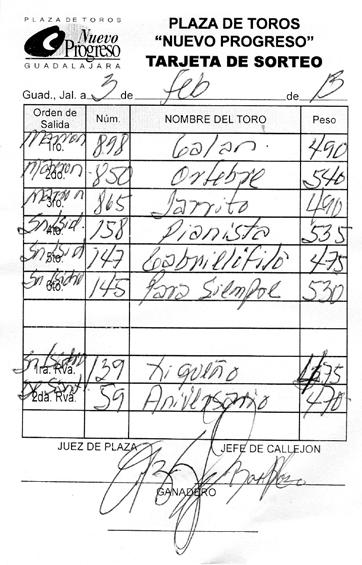 PLAZA DE TOROS
Nuevo
Progreso
GUADALAJARA
PLAZA DE TOROS
“NUEVO PROGRESO”
TARJETA DE SORTEO
Guad., Jal. a 3 de Feb de 13
Orden de Salida Núm. NOMBRE DEL TORO Peso
1ro. 898 Galan. 490
2do. 850 Orfebre 540
3ro. 865 Jarrito 490
4to. 158 Pianista 535
5to. 147 Gabrielitito 475
6to. 145 Para Siempre 530
1ra. Rva. 139 Xiqueño 475
2da. Rva. 59 Aniversario 470
JUEZ DE PLAZA JEFE DE CALLEJON
GANADERO